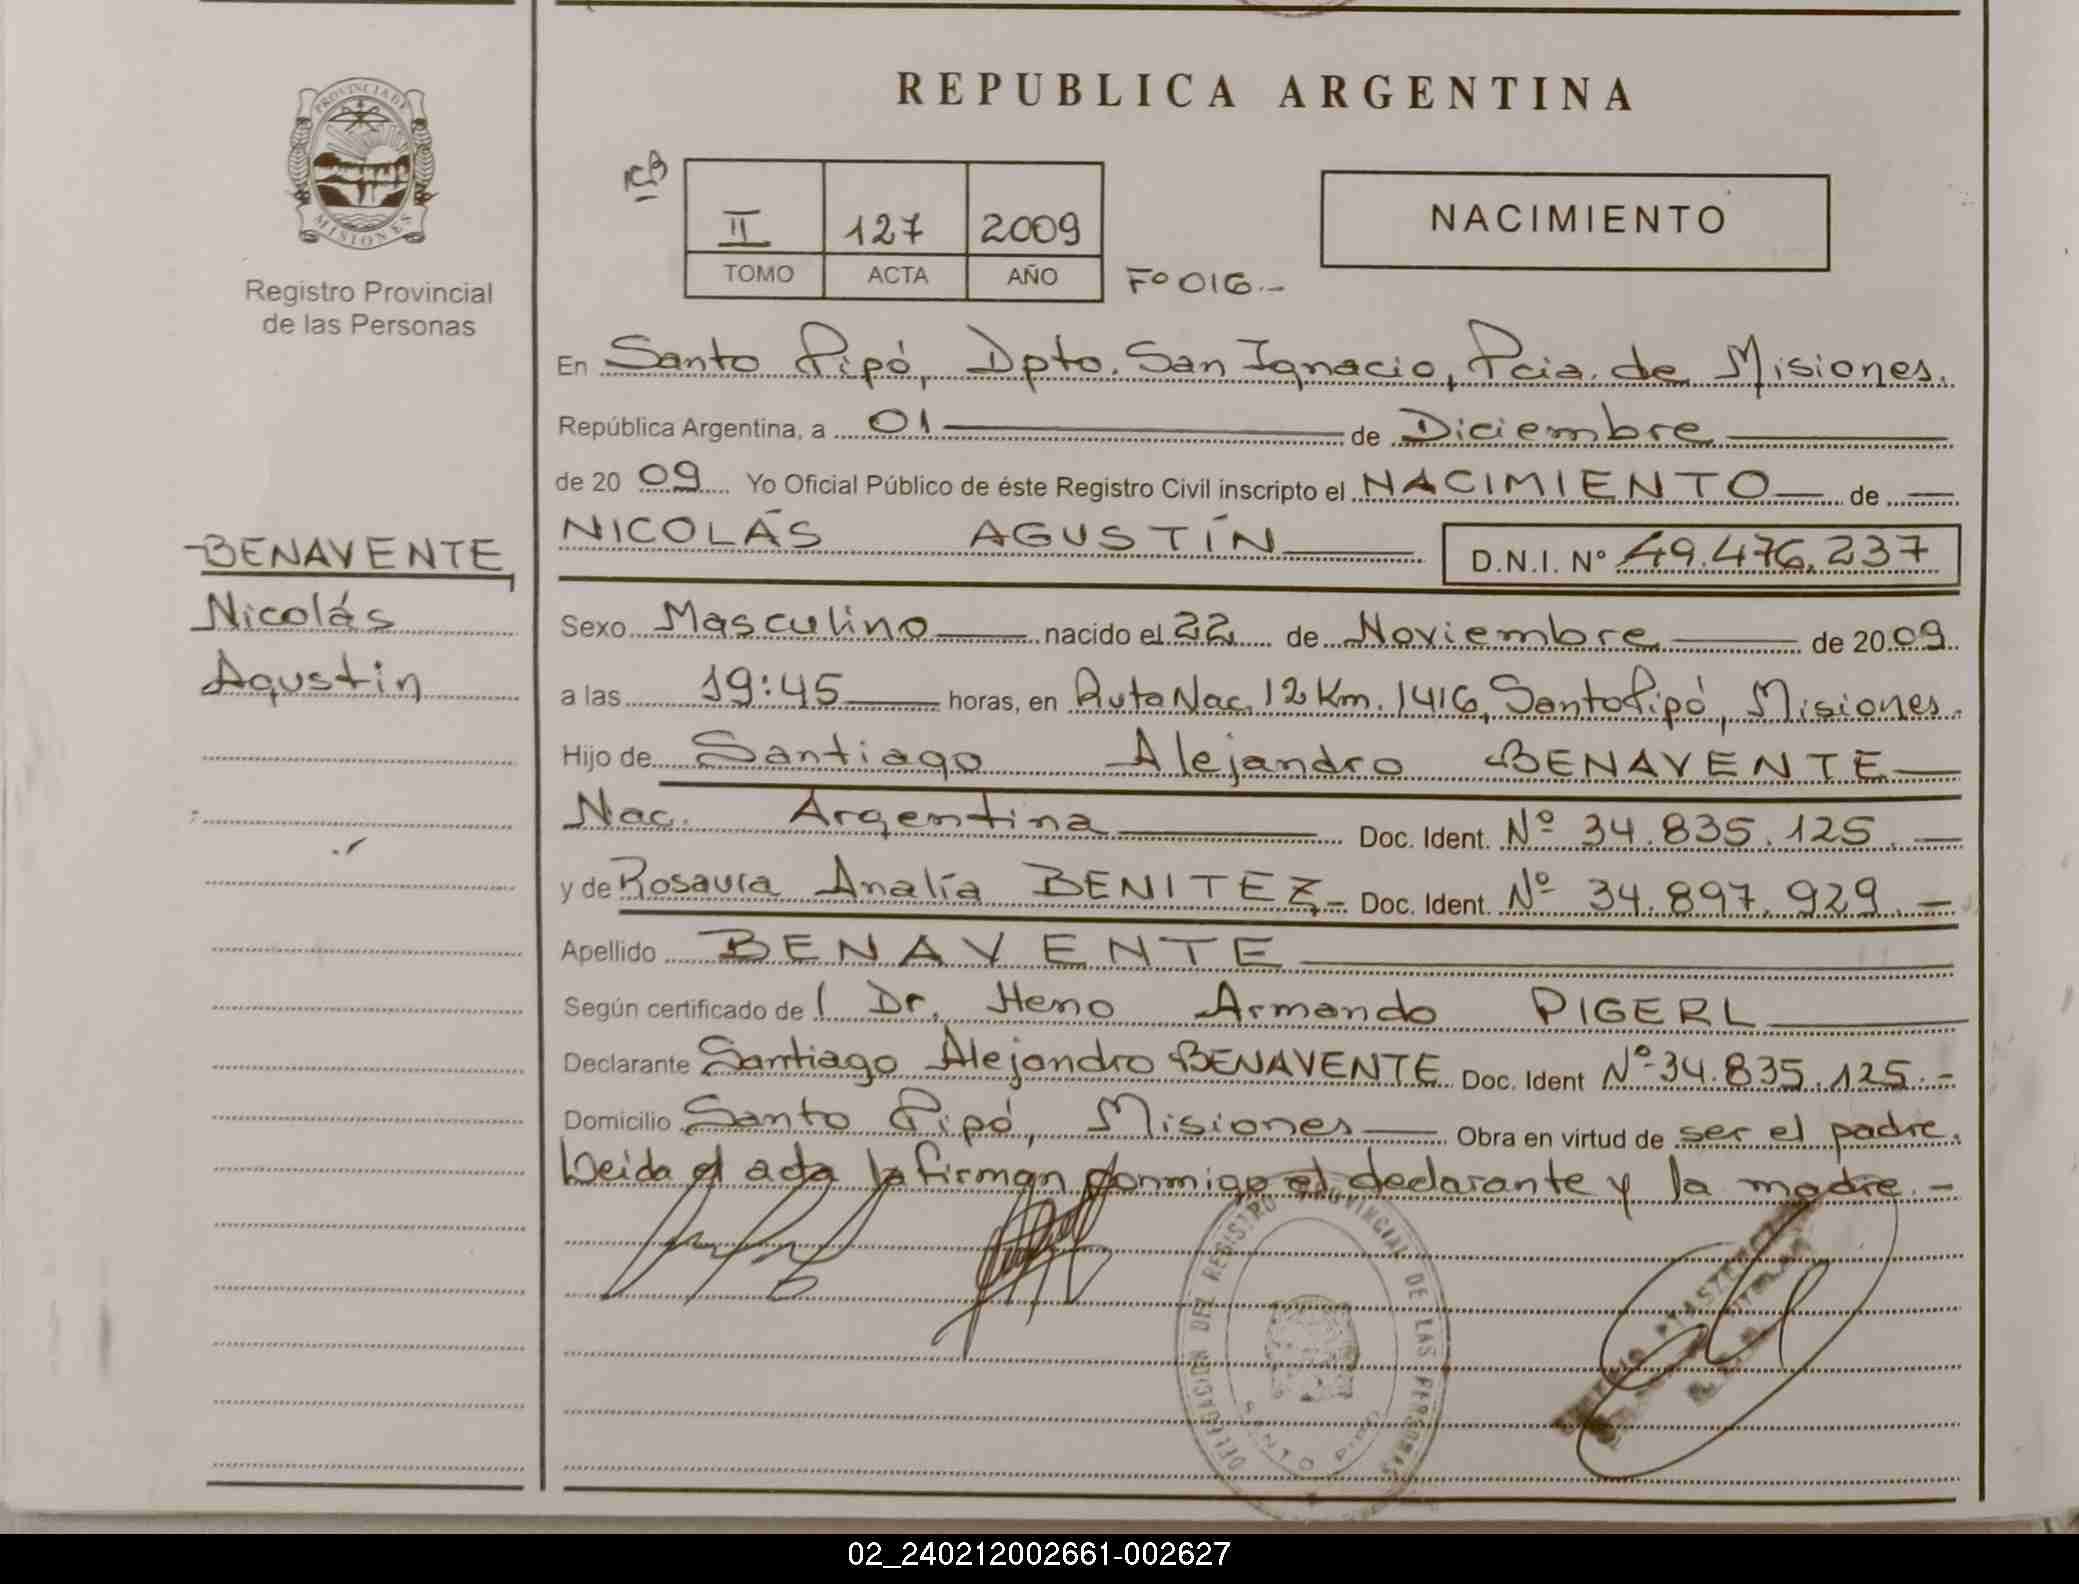 REPUBLICA ARGENTINA
PROVINCIA DE
MISIONES
Registro Provincial
de las Personas
II 127 2009
TOMO ACTA AÑO
Fº 016.-
NACIMIENTO
BENAVENTE
Nicolás
Agustin
En Santo Pipó, Dpto. San Ignacio, Pcia. de Misiones.
República Argentina, a 01 de Diciembre
de 2009 Yo Oficial Público de éste Registro Civil inscripto el NACIMIENTO de
NICOLÁS AGUSTÍN D.N.I. Nº 49.476.237
Sexo Masculino nacido el 22 de Noviembre de 2009
a las 19:45 horas, en Ruta Nac. 12 Km. 1416, Santo Pipó, Misiones.
Hijo de Santiago Alejandro BENAVENTE
Nac. Argentina Doc. Ident. Nº 34.835.125.-
y de Rosaura Analía BENITEZ.- Doc. Ident. Nº 34.897.929.-
Apellido BENAVENTE
Según certificado de l Dr. Heno Armando PIGERL
Declarante Santiago Alejandro BENAVENTE Doc. Ident Nº 34.835.125.-
Domicilio Santo Pipó, Misiones Obra en virtud de ser el padre.
Leida el acta la firman conmigo el declarante y la madre.-
DELEGACION DEL REGISTRO PROVINCIAL DE LAS PERSONAS
SANTO PIPO
02_240212002661-002627